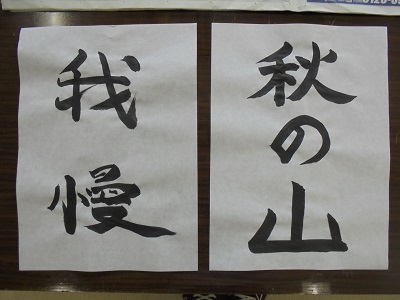 秋の山
我慢